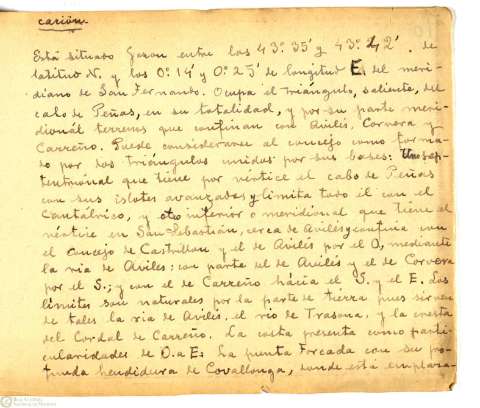 cación.
Está situado Gozon entre los 43º 35' y 43º 42' . de
latitud N. y los 0º 14' y 0º 25' de longitud E. del meri-
diano de San Fernando. Ocupa el triángulo, saliente, del
cabo de Peñas, en su totalidad, y por su parte meri-
dional terrenos que confinan con Avilés, Corvera y
Carreño. Puede considerarse al concejo como forma-
do por dos triángulos unidos por sus bases: Uno sep-
tentrional que tiene por vértice el cabo de Peñas
con sus islotes avanzados y limita todo él con el
Cantábrico, y otro inferior o meridional que tiene el
vértice en San Sebastián, cerca de Avilés y confina con
el concejo de Castrillon y el de Avilés por el O, mediante
la ria de Avilés; con parte del de Avilés y el de Corvera
por el S.; y con el de Carreño hácia el S. y el E. Los
límites son naturales por la parte de tierra pues sirven
de tales la ria de Avilés, el rio de Trasona, y la cuesta
del Cordal de Carreño. La costa presenta como parti-
cularidades de O. a E. La punta Forcada con su pro-
funda hendidura de Covallonga, donde está emplaza-